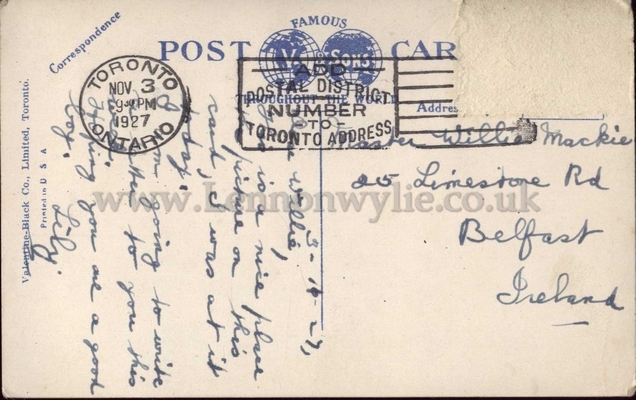 Correspondence
FAMOUS
POST CAR
V & SONS
THROUGHOUT THE WORLD
Addres
TORONTO
NOV 3
9 30 PM
1927
ONTARIO
ADD
POSTAL DISTRICT
NUMBER
TO
TORONTO ADDRESS
aster Willie Mackie
25 Limestone Rd
Belfast
Ireland
3-11-27,
Willie,
is a nice place
picture on this
card, I was at it
today.
going to write
to you this
you are a good
boy. Lily.
Valentine-Black Co., Limited, Toronto.
Printed in U S A
www.Lennonwylie.co.uk